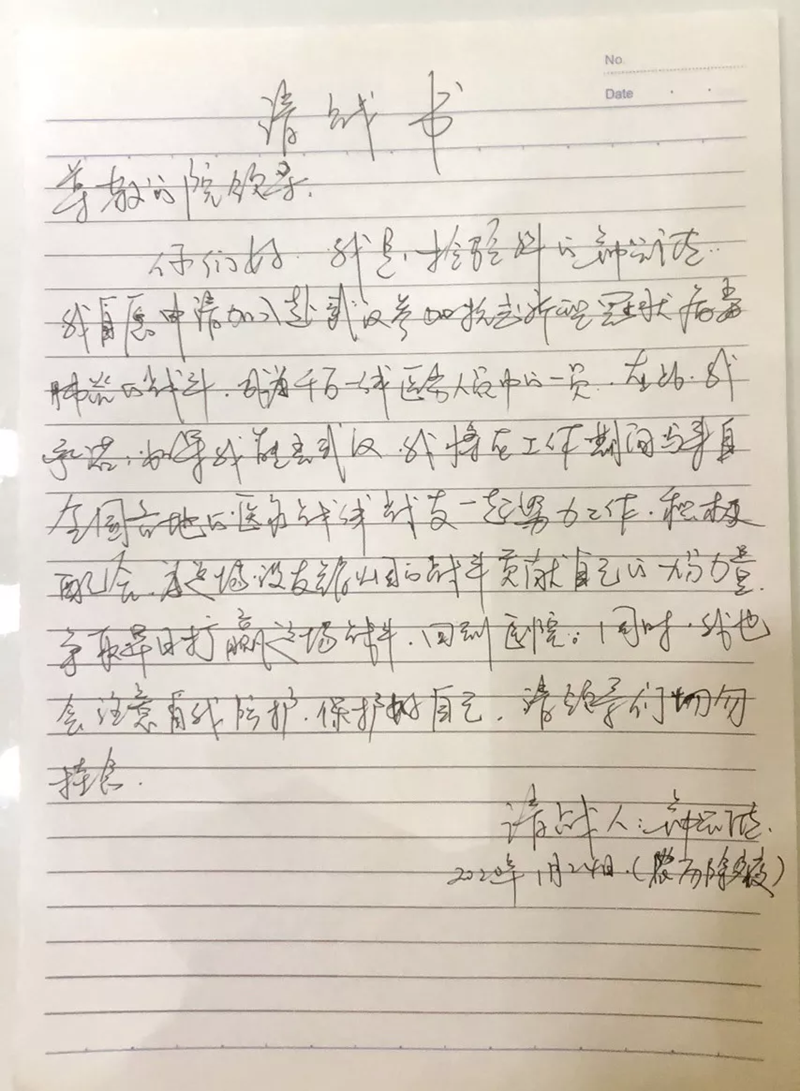 No
Date . .
请战书
尊敬的院领导.
你们好.我是检验科的
我自愿申请加入赴武汉参加抗击新型冠状病毒
肺炎的战斗.成为千百一线医务人员中的一员.在此.我
承诺:如果我前去武汉.我将在工作期间与来自
全国各地的医务战线战友一起努力工作.积极
配合.为这场没有硝烟的战斗贡献自己的力量.
争取早日打赢这场战斗.回到医院。同时.我也
会注意自我防护.保护好自己.请领导们切勿
挂念.
请战人:
2020年1月24日.(农历除夕夜)